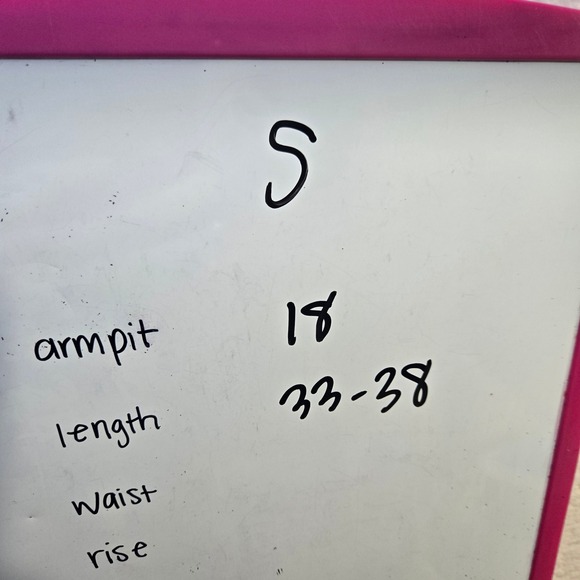 S
armpit 18
length 33-38
waist
rise